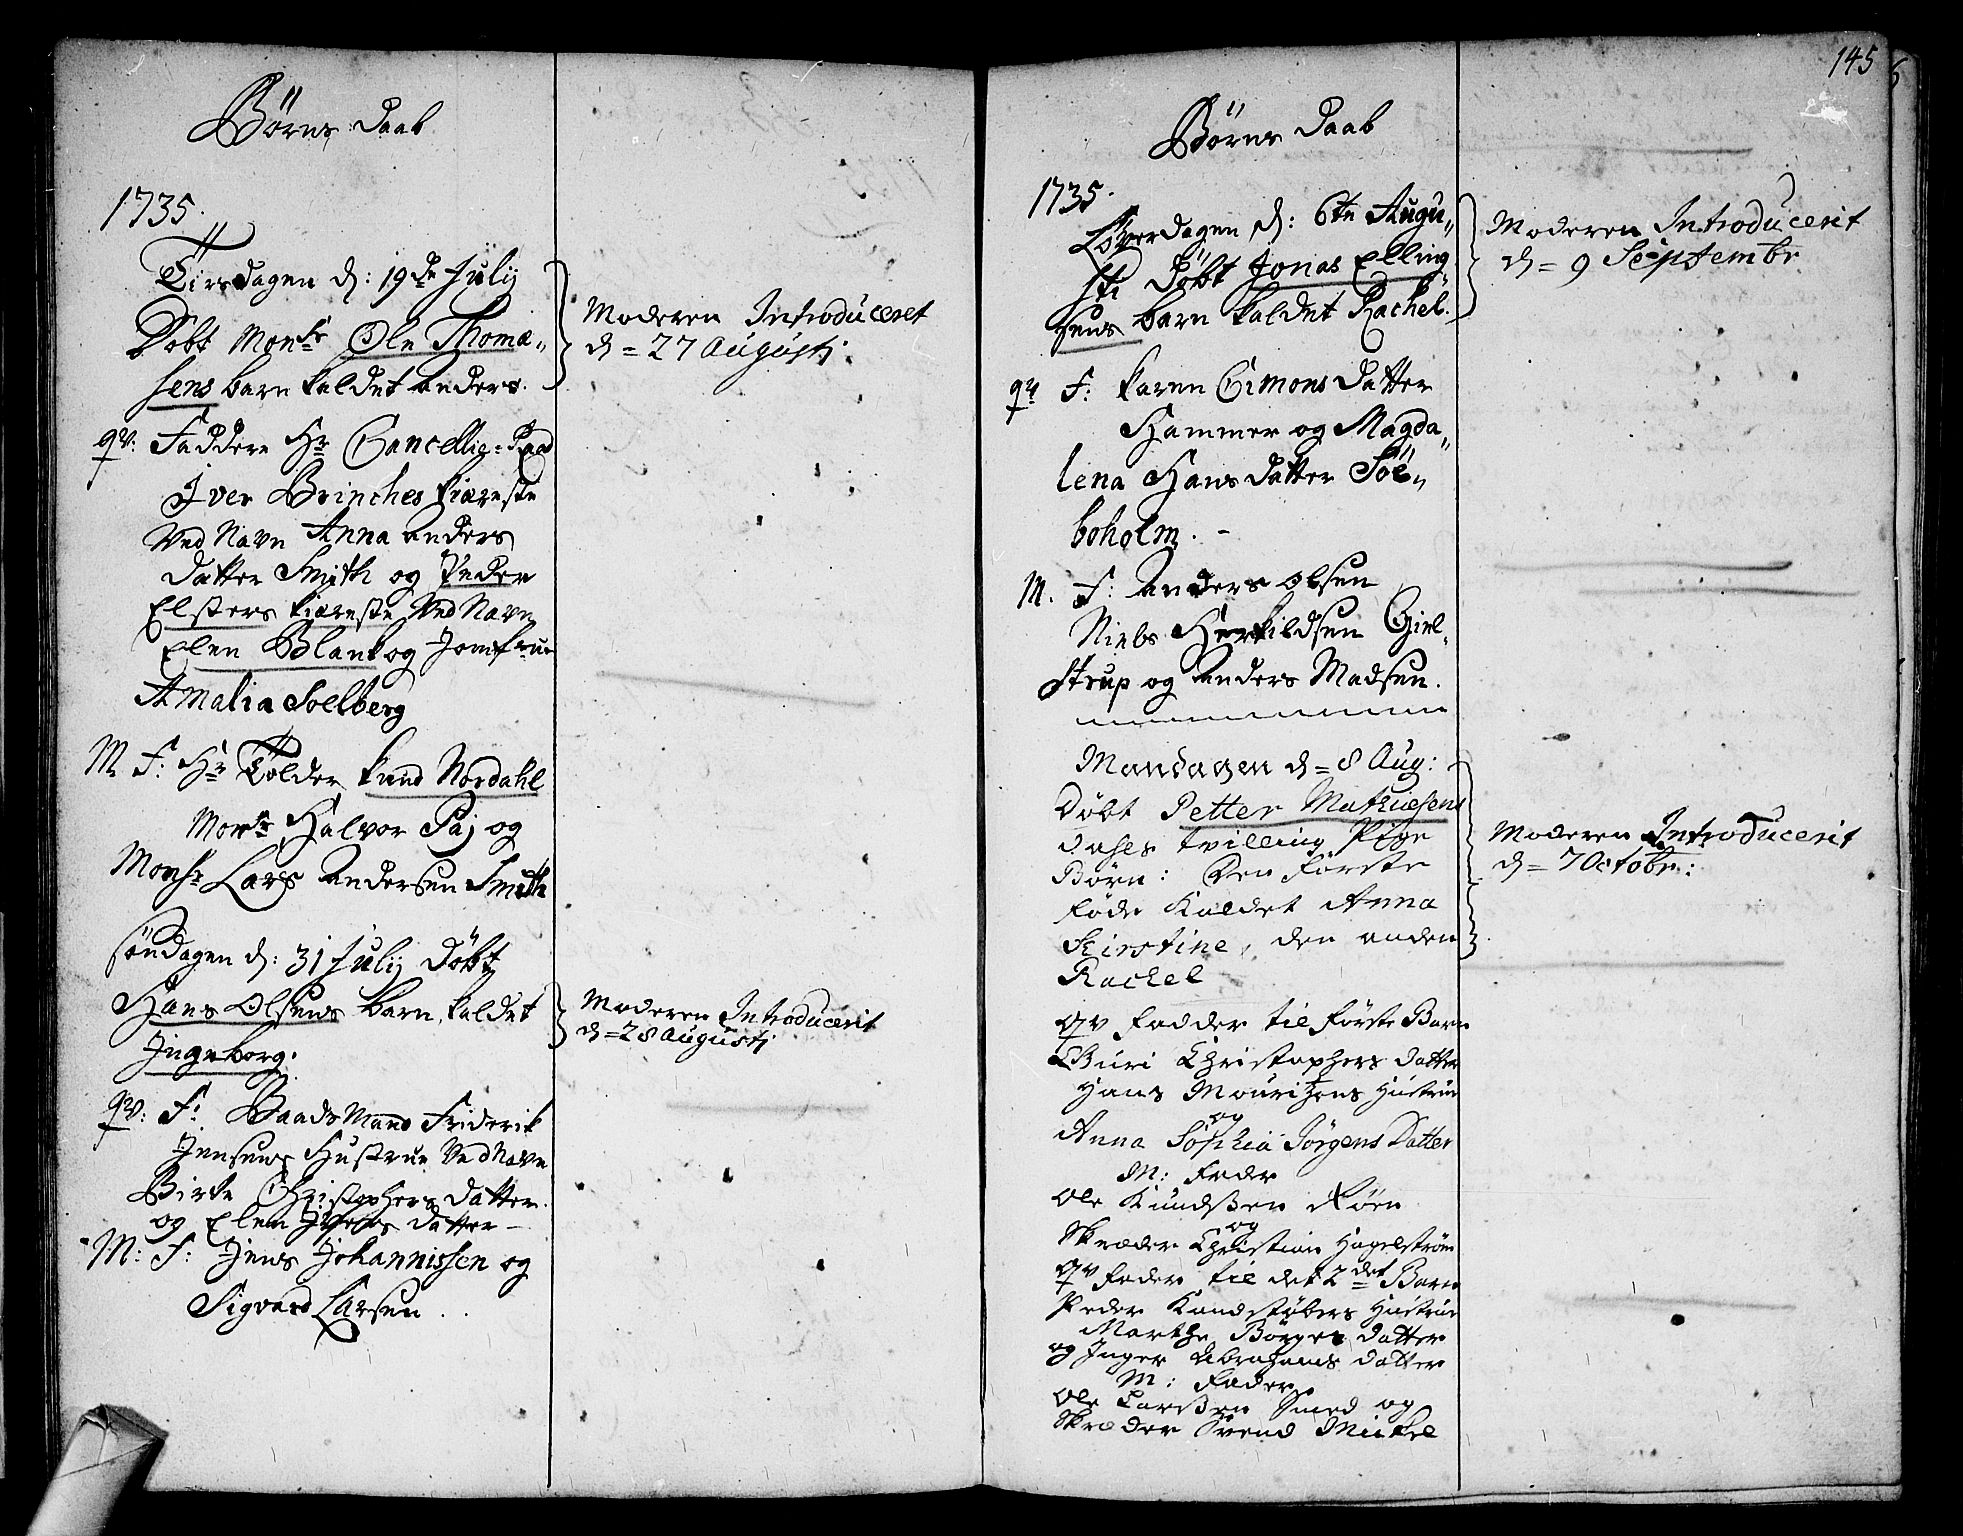 Børns Daab
1735.
Tirsdagen d: 19de Julij
Døbt Monsr Ole Thomæ„
sens barn kaldet Anders.
qv: Faddere Hr Cancellie=Raad
Iver Brinches kiæreste
Ved Navn Anna Anders
datter Smith og Peder
Elsters kiæreste Ved Navn
Elen Blank og Jomfrue
Amalia Soelberg
M F: Hr Tolder Knud Nordahl
Monsr Halvor Paj og
Monsr Lars Andersen Smith
Søndagen d: 31 Julij Døbt
Hans Olsens barn, kaldet
Ingeborg.
qv: F: Baadsmand Friderik
Jensens Hustrue Ved Navn
Birte Christophers datter.
og Elen Ivers datter –
M: F: Jens Johannissen og
Sigvard Larsen.
Moderen Introduceret
d = 27 Augustj.
Moderen Introducerit
d = 28 Augustj
145
Børns Daab
1735.
Løverdagen d: 6te Augu„
sti Døbt Jonas Elling„
sens barn kaldet Rachel.
qv F: Karen Simons datter
Hammer og Magda„
lena Hans datter Søe„
boholm. –
M. F: Anders Olsen
Niels Herkildsen Giel„
strup og Anders Madsen.
Mandagen d = 8 Aug:
Døbt Petter Mathiesens
Dahls tvilling Pige
Børn: Den første
føde Kaldet Anna
Kirstine, den anden
Rachel
qv fadder til første Barn
Guri Christophers datter
Hans Mouritzens Hustrue
og
Anna Sophia Jørgens Datter
M: fadr
Ole Knudsen Røen
og
Skræder Christian Hagelstrøm
qv fader til det 2det Barn
Peder Kandstøbers Hustrue
Marthe Børges datter
og Inger Abrahams datter
M: fader
Ole Larsen Smed og
Skræder Svend Mickel
Moderen Introducerit
d = 9 Septembr
Moderen Introducerit
d = 7 Octobr: